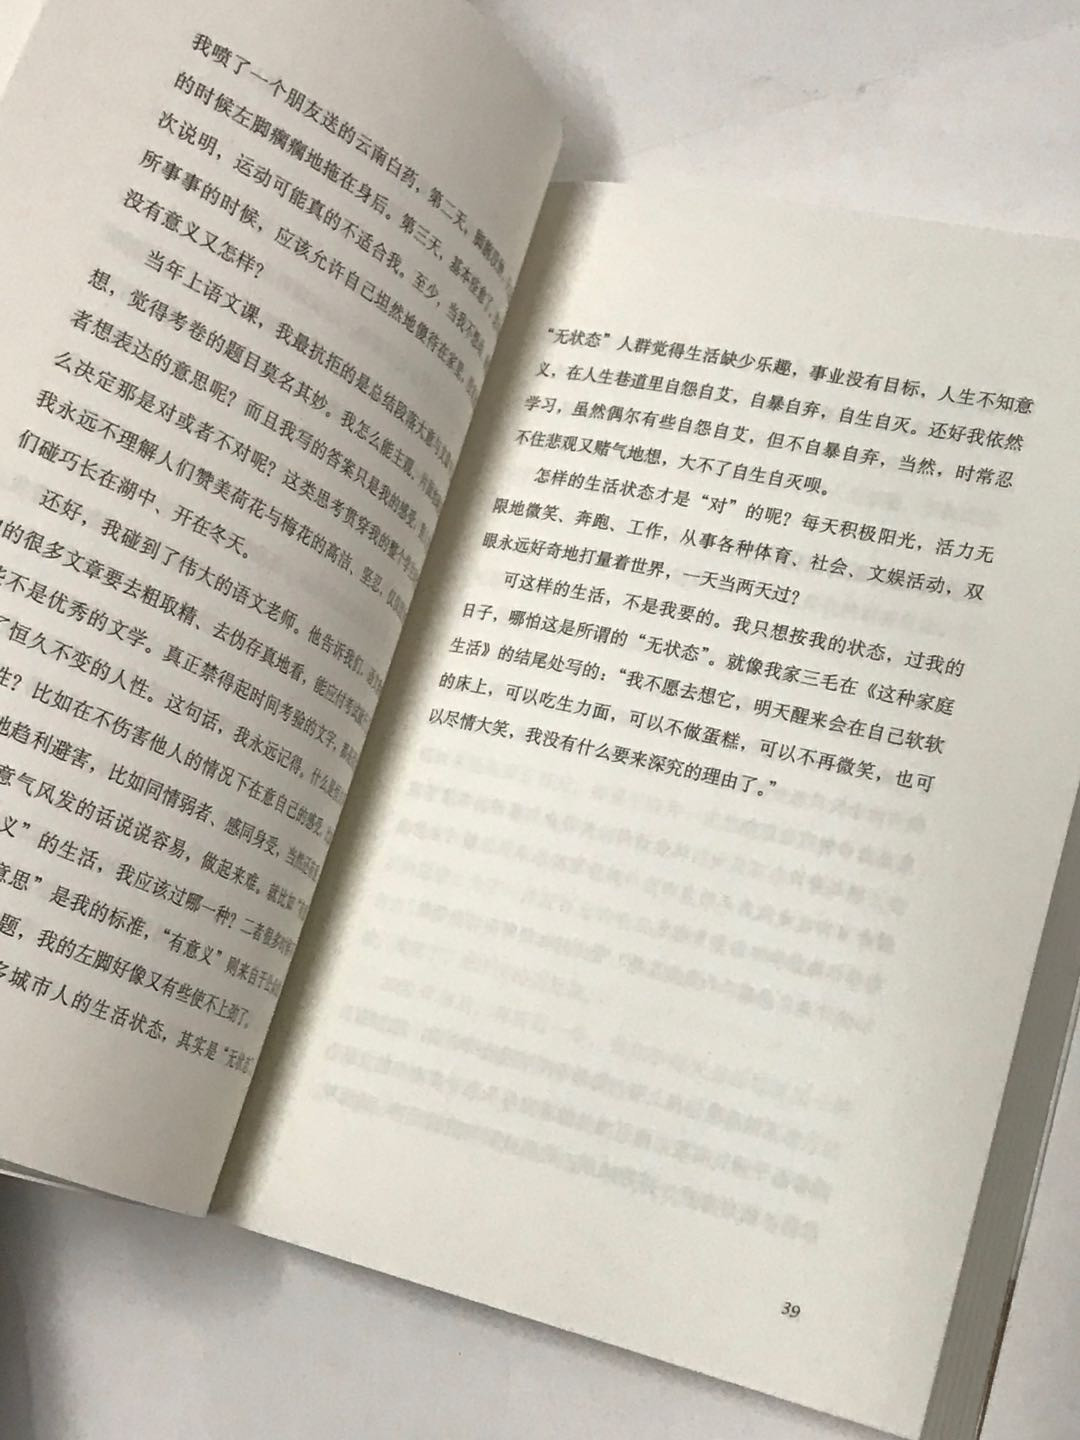 我喷了一个朋友送的云南白药，第二天，脚
的时候左脚瘸瘸地拖在身后。第三天，基本痊愈了。
次说明，运动可能真的不适合我。至少，当我不想
所事事的时候，应该允许自己坦然地傻待在家里。
没有意义又怎样？
当年上语文课，我最抗拒的是总结段落大意与
想，觉得考卷的题目莫名其妙。我怎么能主观、
者想表达的意思呢？而且我写的答案只是我的感受，
么决定那是对或者不对呢？这类思考贯穿我的整个学生
我永远不理解人们赞美荷花与梅花的高洁、坚忍，仅
们碰巧长在湖中、开在冬天。
还好，我碰到了伟大的语文老师。他告诉我们，语文
的很多文章要去粗取精、去伪存真地看，能应付考试
不是优秀的文学。真正禁得起时间考验的文字，都
了恒久不变的人性。这句话，我永远记得。什么是
性？比如在不伤害他人的情况下在意自己的感受，
地趋利避害，比如同情弱者、感同身受，当然还有
意气风发的话说说容易，做起来难。就比如“有
义”的生活，我应该过哪一种？二者很多时候
意思”是我的标准，“有意义”则来自于
题，我的左脚好像又有些使不上劲了。
多城市人的生活状态，其实是“无状态”
“无状态”人群觉得生活缺少乐趣，事业没有目标，人生不知意
义，在人生巷道里自怨自艾，自暴自弃，自生自灭。还好我依然
学习，虽然偶尔有些自怨自艾，但不自暴自弃，当然，时常忍
不住悲观又赌气地想，大不了自生自灭呗。
怎样的生活状态才是“对”的呢？每天积极阳光，活力无
限地微笑、奔跑、工作，从事各种体育、社会、文娱活动，双
眼永远好奇地打量着世界，一天当两天过？
可这样的生活，不是我要的。我只想按我的状态，过我的
日子，哪怕这是所谓的“无状态”。就像我家三毛在《这种家庭
生活》的结尾处写的：“我不愿去想它，明天醒来会在自己软软
的床上，可以吃生力面，可以不做蛋糕，可以不再微笑，也可
以尽情大笑，我没有什么要来深究的理由了。”
39